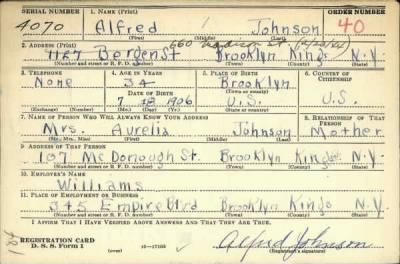 SERIAL NUMBER 1. NAME (Print) ORDER NUMBER
4070 Alfred Johnson 40
(First) (Middle) (Last)
2. ADDRESS (Print)
1127 Bergen St Brooklyn Kings N.Y.
(Number and street or R. F. D. number) (Town) (County) (State)
3. TELEPHONE 4. AGE IN YEARS 5. PLACE OF BIRTH 6. COUNTRY OF CITIZENSHIP
None 34 Brooklyn
DATE OF BIRTH (Town or county)
7 18 1906 U.S. U.S.
(Exchange) (Number) (Mo.) (Day) (Yr.) (State or country)
7. NAME OF PERSON WHO WILL ALWAYS KNOW YOUR ADDRESS 8. RELATIONSHIP OF THAT PERSON
Mrs. Aurelia Johnson Mother
(Mr., Mrs., Miss) (First) (Middle) (Last)
9. ADDRESS OF THAT PERSON
107 McDonough St. Brooklyn Kings N.Y.
(Number and street or R. F. D. number) (Town) (County) (State)
10. EMPLOYER'S NAME
Williams
11. PLACE OF EMPLOYMENT OR BUSINESS
345 Empire Blvd Brooklyn Kings N.Y.
(Number and street or R. F. D. number) (Town) (County) (State)
I AFFIRM THAT I HAVE VERIFIED ABOVE ANSWERS AND THAT THEY ARE TRUE.
REGISTRATION CARD
D. S. S. FORM 1 (over) 16—17105 Alfred Johnson
(Registrant's signature)